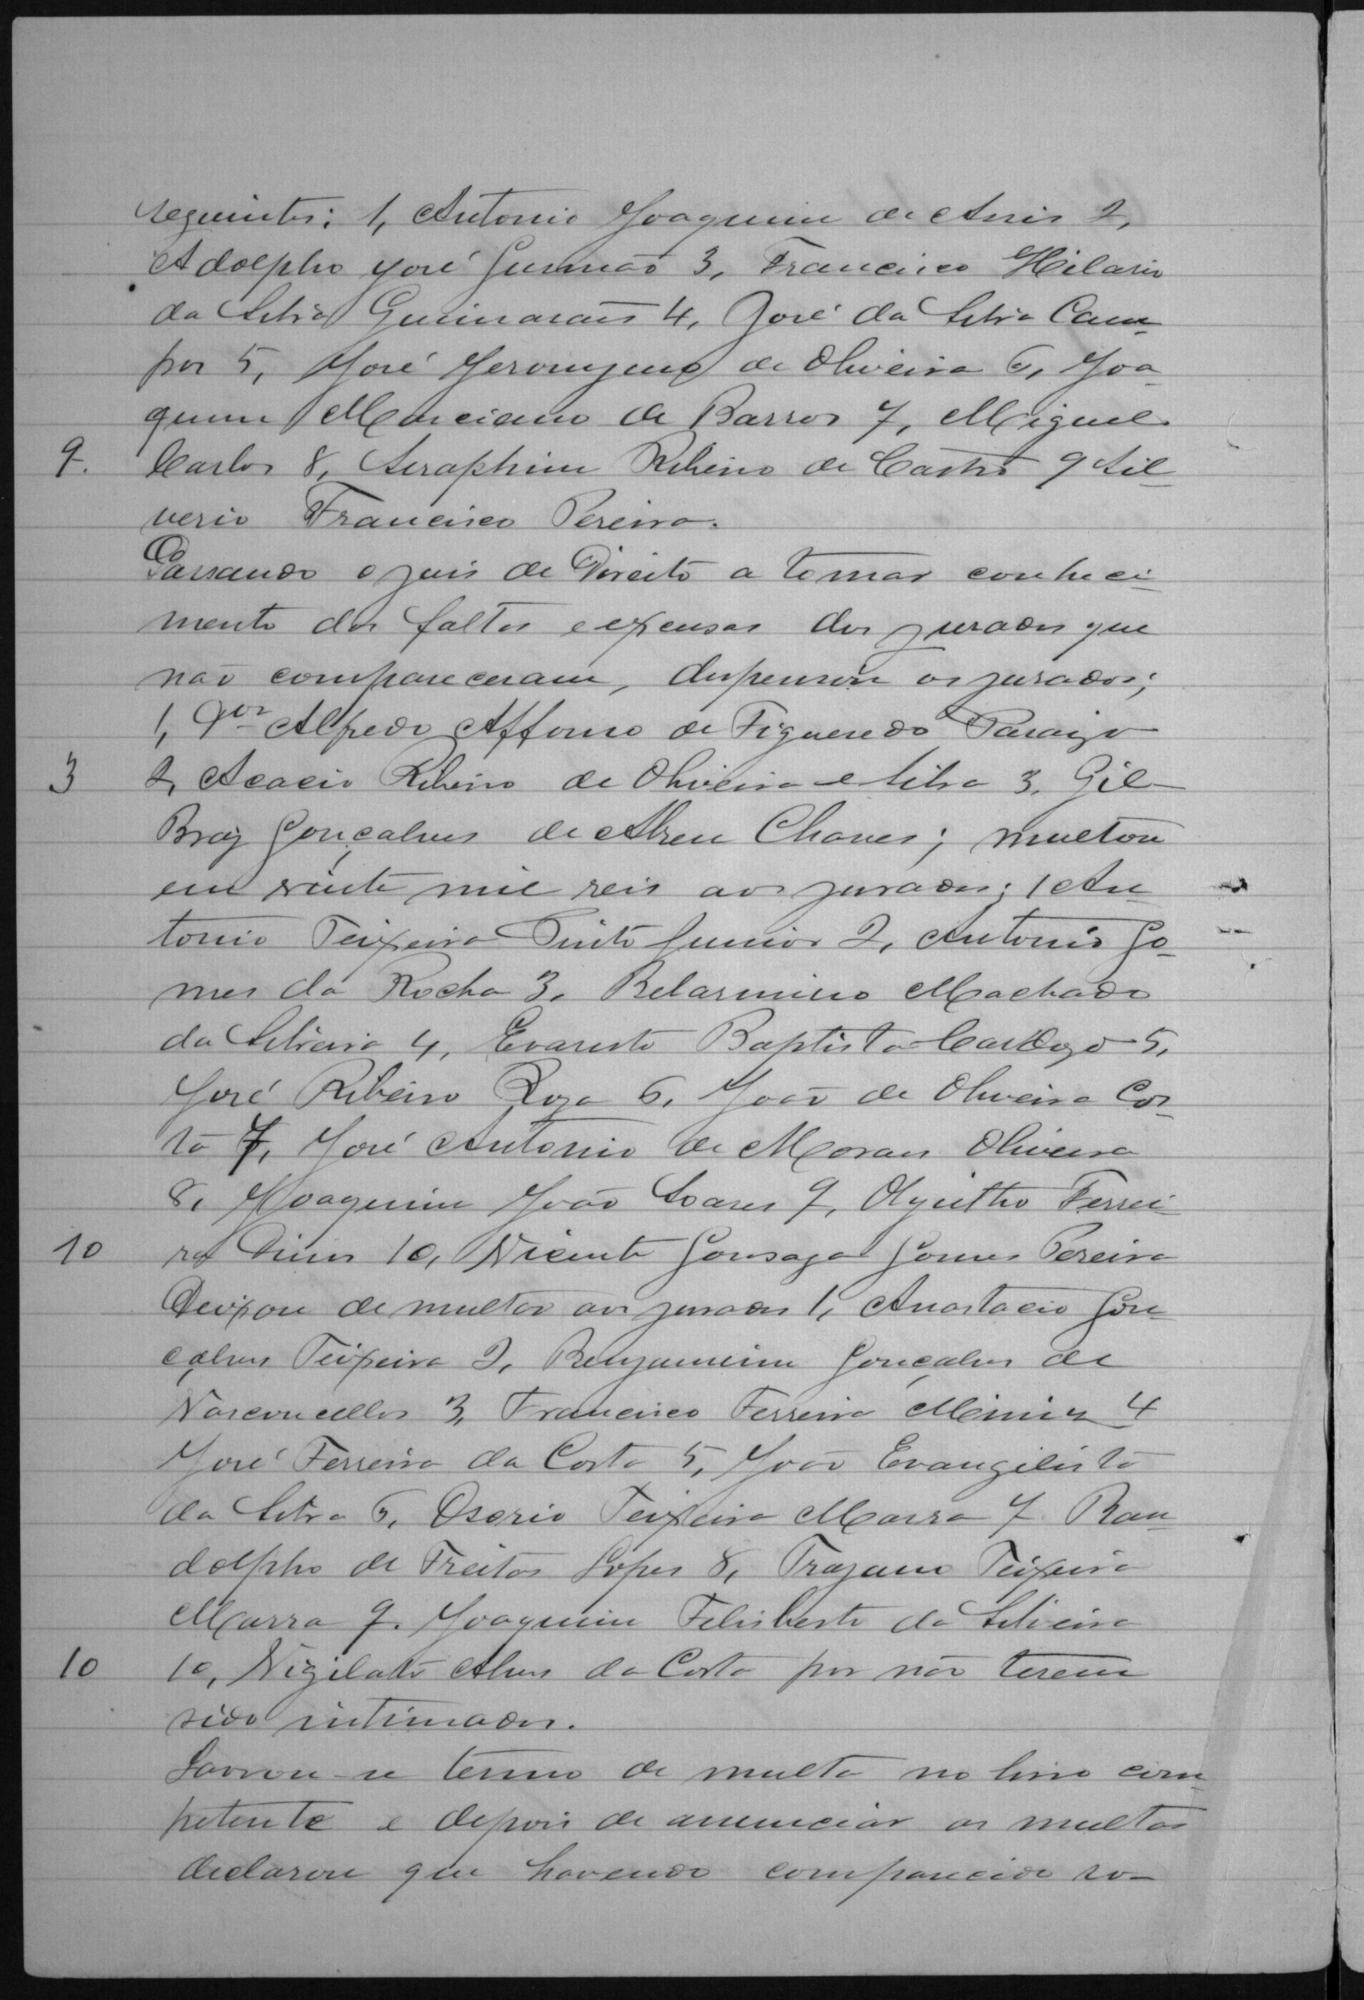 seguintes: 1, Antonio Joaquim de Assis 2,
Adolpho José Gusmão 3, Francisco Hilario
da Silva Guimarães 4, José da Silva Cam-
pos 5, José Jeronymo de Oliveira 6, Joa-
quim Marciano de Barros 7, Miguel
9. Carlos 8, Seraphim Ribeiro de Castro 9 Sil-
verio Francisco Pereira.
Passando o juis de Direito a tomar conheci-
mento das faltas e expensas dos jurados que
não compareceram, dispensou os jurados;
1, Dor Alfredo Affonso de Figueredo Paraizo
3 2, Acacio Ribeiro de Oliveira e Silva 3, Gil
Braz Gonçalves de Abreu Chaves; multou
em vinte mil reis aos jurados; 1 An-
tonio Teixeira Pinto Junior 2, Antonio Go-
mes da Rocha 3, Belarmino Machado
da Silveira 4, Evaristo Baptista Cardozo 5,
José Ribeiro Roza 6, João de Oliveira Cos-
ta 7, José Antonio de Moraes Oliveira
8, Joaquim João Soares 9, Olyntho Ferrei-
10 ra Diniz 10, Vicente Gonsaga Gomes Pereira
Deixou de multar aos jurados 1, Anastacio Gon-
çalves Teixeira 2, Benjamim Gonçalves de
Vasconcellos 3, Francisco Ferreira Muniz 4
José Ferreira da Costa 5, João Evangelista
da Silva 6, Osorio Teixeira Marra 7 Ran-
dolpho de Freitas Lopes 8, Trajano Teixeira
Marra 9. Joaquim Felisberto da Silveira
10 10, Vigilato Alves da Costa por não terem
sido intimados.
Lavrou-se termo de multa no livro com-
petente e depois de anunciar as multas
declarou que havendo comparecido so-